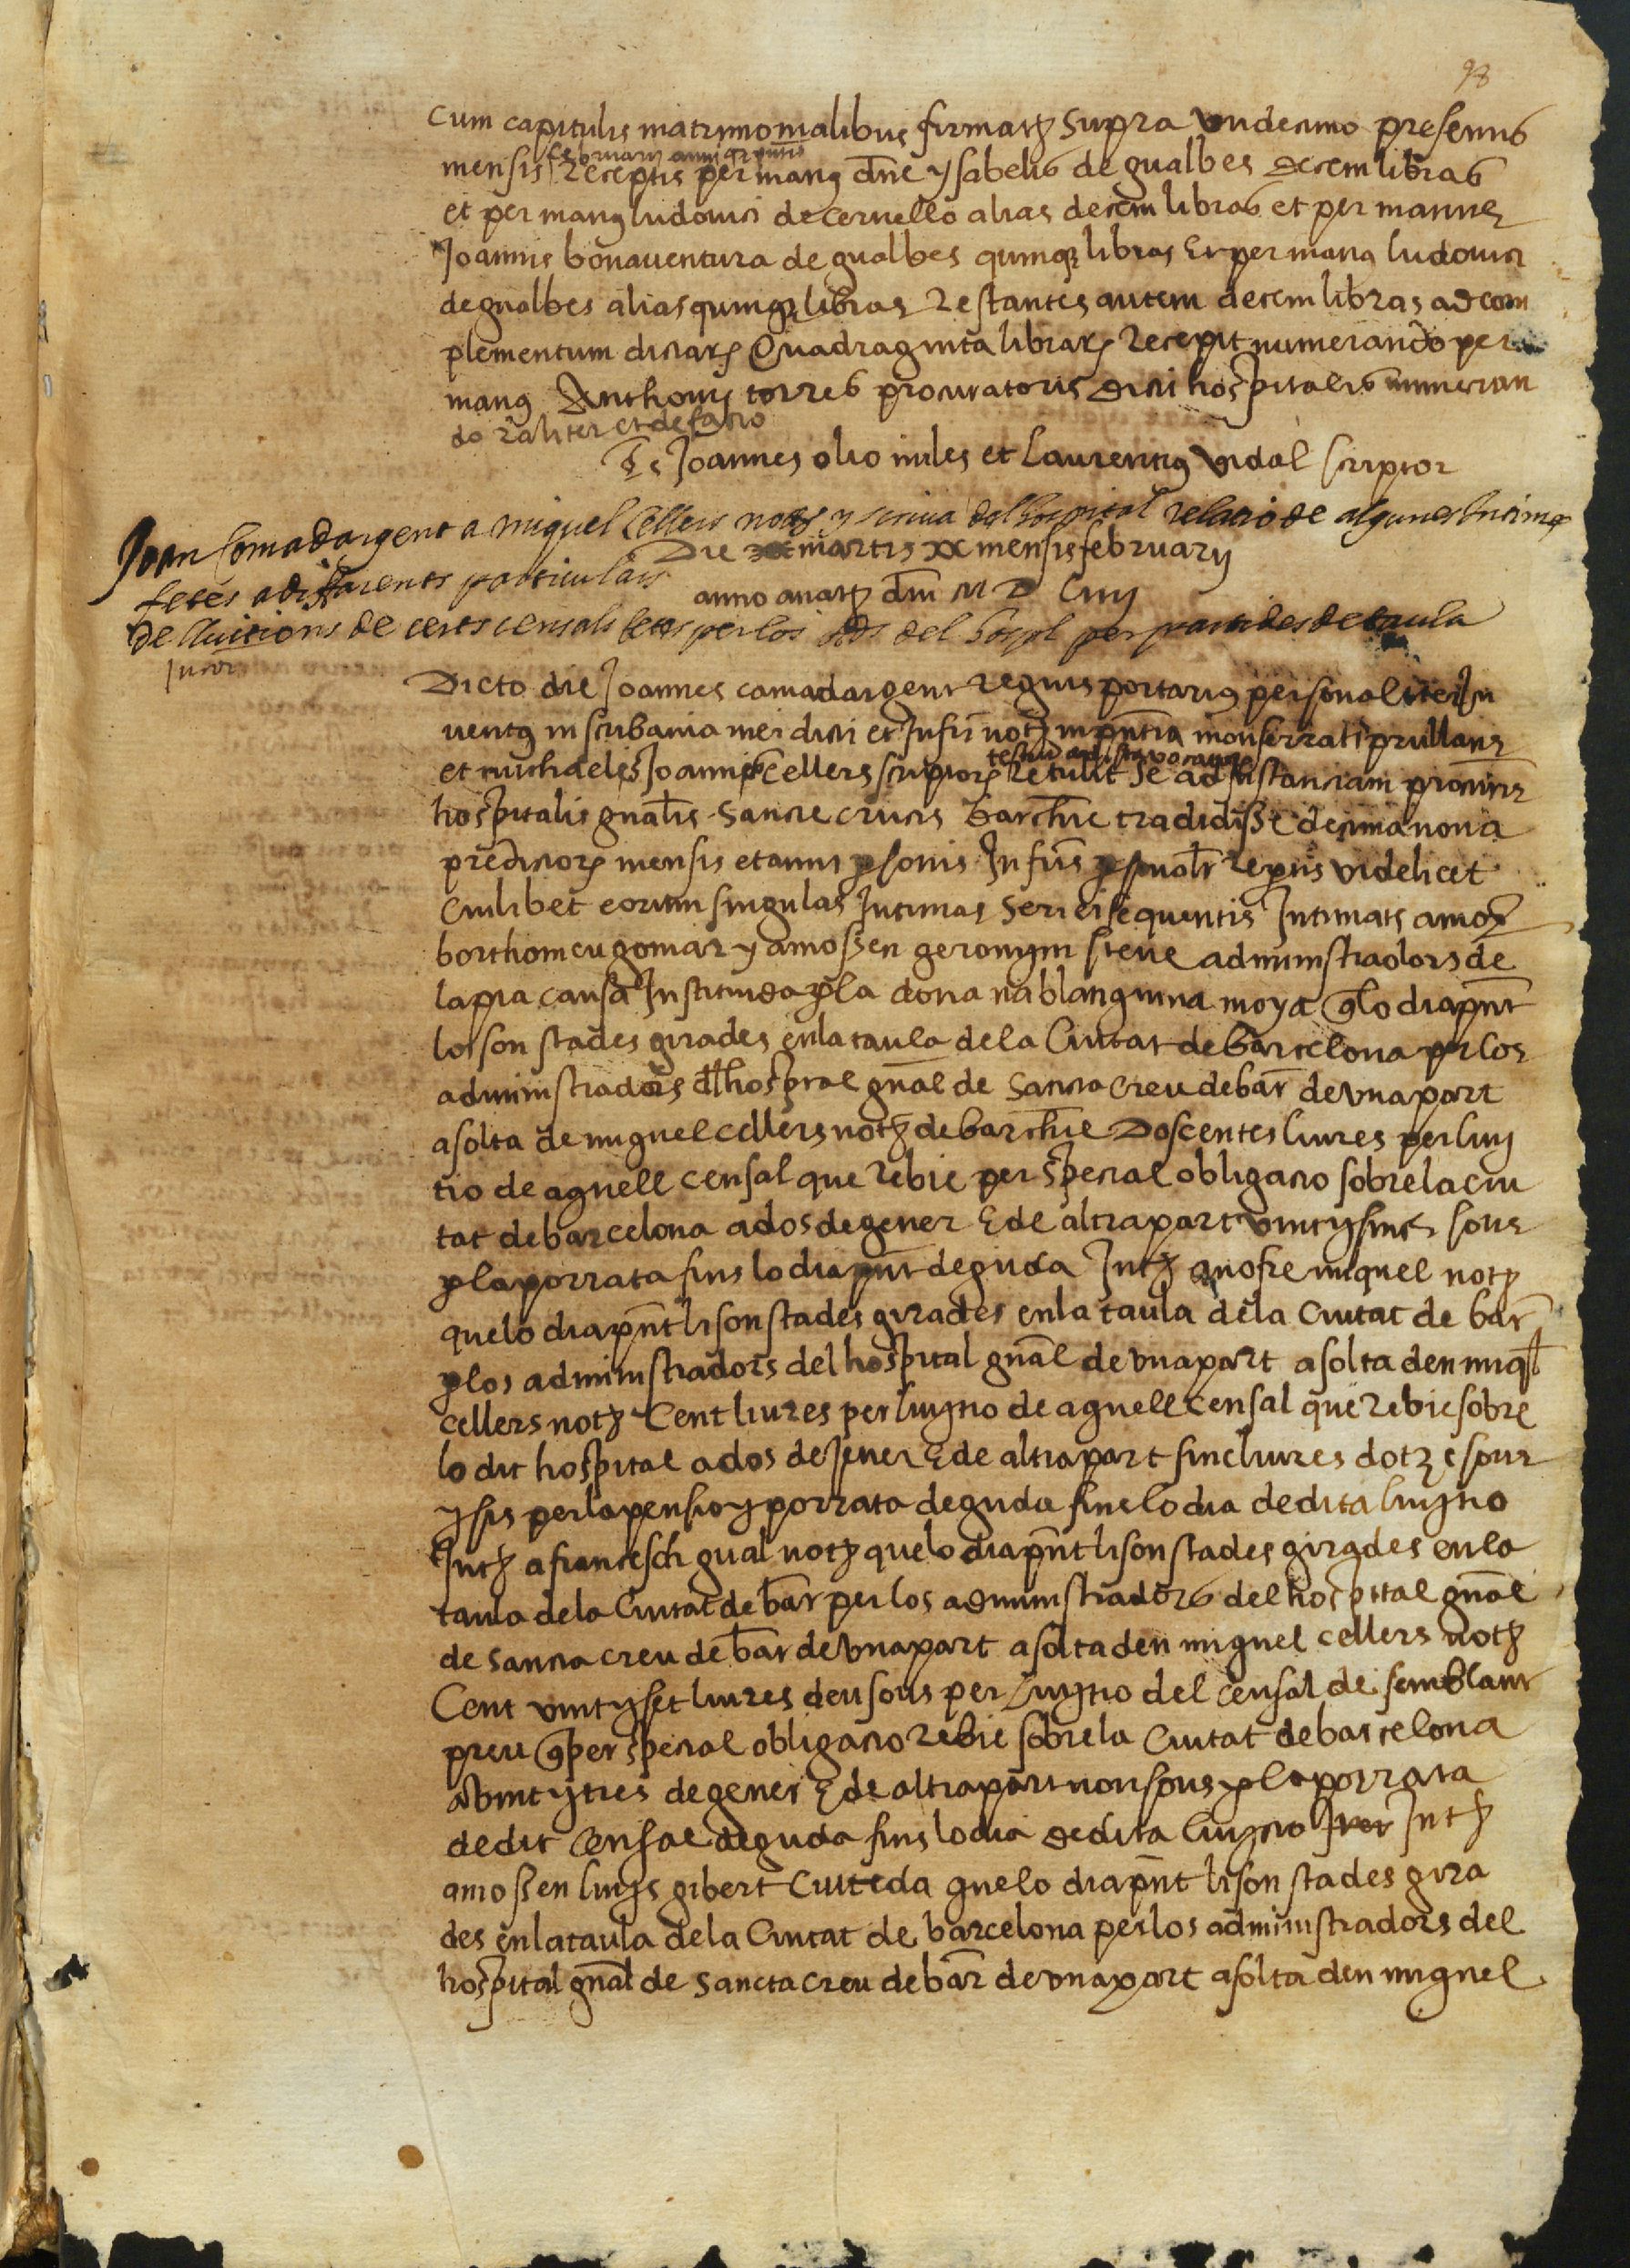 98
Cum capitulis matrimonialibus firmatz supra undecimo presentis
februarij anni presentis
mensis Receptis per manꝰ dn̄e ysabelis de gualbes decem libras
et per manꝰ ludovici de cervello alias decem libras et per manus
Joannis bonaventura de gualbes quinqꝫ libras Et per manꝰ ludovici
de gualbes alias quinqꝫ libras Restantes autem decem libras ad com
plementum dictarꝝ Quadraginta librarꝝ Recepit numerando per
manꝰ Anthonij torres procuratoris dicti hospitalis numeran
do r̄aliter et de facto
Ts Joannes olio miles et Laurentiꝰ vidal scriptor
Joan Comadargent a miquel Cellers notꝫ y scriva del hospital relatio de algunes Intimes
Die martis xx mensis february
fetes a differents particulars
anno a natꝫ dn̄i M D Lviij
de lluitions de certs censals fetes per los ads del hospl per partides de taula
Dicto die Joannes comadargent regius portariꝰ personaliter In
ventꝰ in scribania mei dicti et Infrī notꝫ in pn̄tia monserrati prullans
testiu ad ista vocatorꝝ
et michaelis Joannis Cellers scriptorꝝ Retulit se ad Instanciam procuris
hospitalis gn̄alis Sancte crucis barchn̄e tradidisse decima nona
predictorꝝ mensis et anni ꝑsonis Infrīs ꝑsonalr̄ repertis videlicet
Cuilibet eorum singulas Intimas seriei sequentis Intimats a mosz
borthomeu gomar y a mossen geronym steve administradors de
la pia causa Instituida ꝑ la dona na blanquina moya q̄ lo dia pn̄t
los son stades girades en la taula de la Ciutat de barcelona per los
administradors del hospital gn̄al de Sancta Creu de bar̄ de una part
a solta de miquel cellers notꝫ de barchn̄e Doscentes liures per luy
tio de aquell censal que rebie per special obligatio sobre la ciu
tat de barcelona a dos de gener E de altra part vint y sinch sous
ꝑ la porrata fins lo dia pn̄t deguda Intꝫ a nofre miquel notꝫ
que lo dia pn̄t li son stades girades en la taula de la Ciutat de bar̄
ꝑ los administradors del hospital gn̄al de una part a solta den miql̄
cellers notꝫ Cent liures per luytio de aquell censal que rebie sobre
lo dit hospital a dos de Jener E de altra part sinc liures dotze sous
y sis per la pensio y porrata deguda fins lo dia de dita luytio
Intꝫ a francesch gual notꝫ que lo dia pn̄t li son stades girades en la
taula de la Ciutat de bar̄ per los administradors del hospital gn̄al
de sancta creu de bar̄ de una part a solta den miquel cellers notꝫ
Cent vint y set liures deu sous per luytio del censal de semblant
preu q̄ per special obligatio rebie sobre la Ciutat de barcelona
a vint y tres de gener E de altra part nou sous ꝑ la porrata
de dit Censal deguda fins lo dia de dita luytio Intꝫ
a mossen luys gibert Ciuteda que lo dia pn̄t li son stades gira
des en la taula de la Ciutat de barcelona per los administradors del
hospital gn̄al de sancta creu de bar̄ de una part a solta den miquel